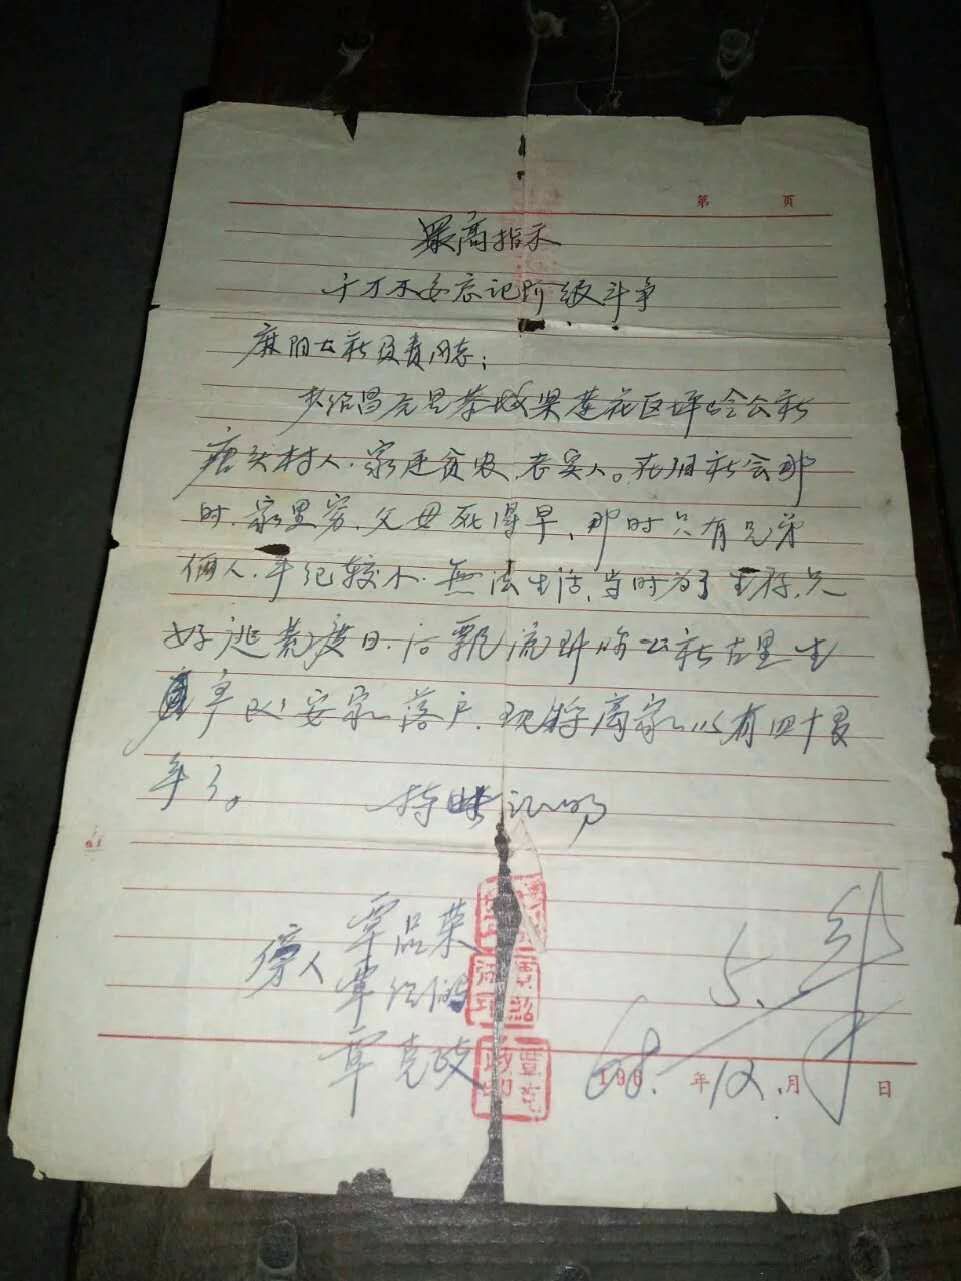 第 页
最高指示
千万不要忘记阶级斗争
麻阳公社负责同志：
绍昌兄是恭城莲花区坪岭公社
唐头村人.家庭贫农.老实人。在旧社会那
时.家里穷.父母死得早、那时只有兄弟
俩人.年纪较小.無法生活、当时为了生存.只
好逃荒度日.后飘流到 公社古里生
产队安家落户.现将离家以有四十多
年了。 特此证明
傍人 覃品荣
覃绍
覃克政
5.
1968.年12.月 日